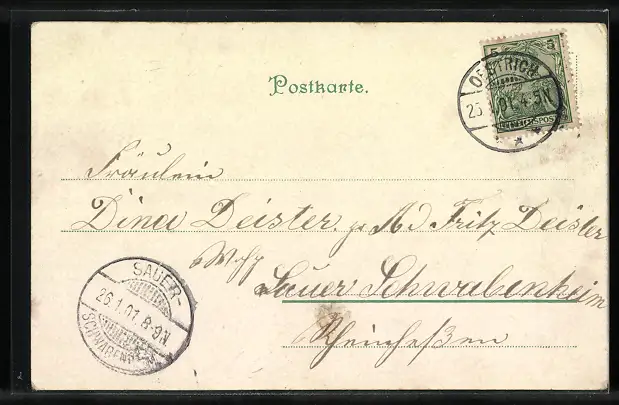 Postkarte.
5 5
OESTRICH
25 1 01. 4-5N
REICHSPOST
Fräulein
Dina Deister. Ad. Fritz Deister
Sauer Schwabenheim
Rheinhessen
SAUER-
26.1.01. 8-9N
SCHWABENH